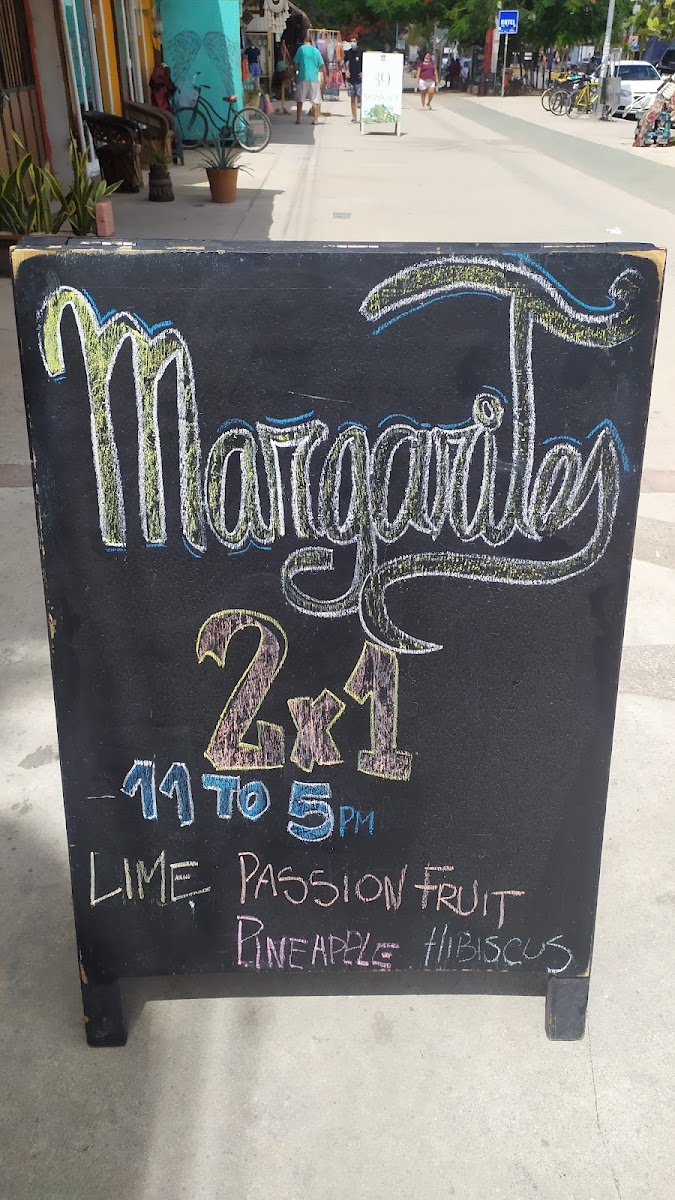 HOTEL
39
Margaritas
2x1
11 TO 5 PM
LIME PASSION FRUIT
PINEAPPLE HIBISCUS